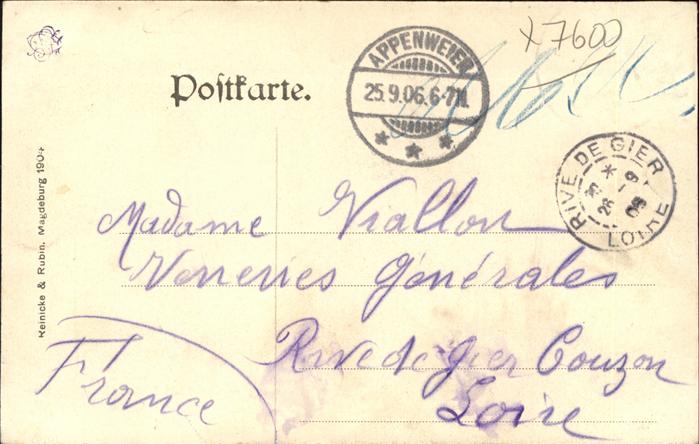 x7600
Poſtkarte.
APPENWEIER
25.9.06.6-7N.
* * *
RIVE DE GIER
LOIRE
Madame Viallon
Verreries Générales
Rive de Gier Couzon
Loire
France
Reinicke & Rubin, Magdeburg 1904